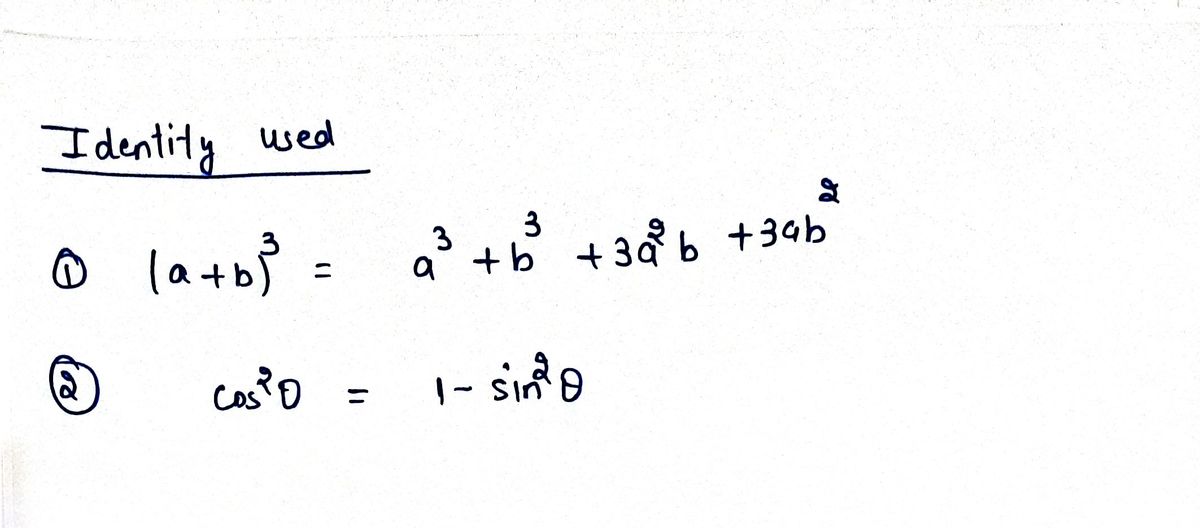 Identity used
① (a+b)³ = a³ + b³ + 3a²b + 3ab²
② cos²θ = 1 - sin²θ